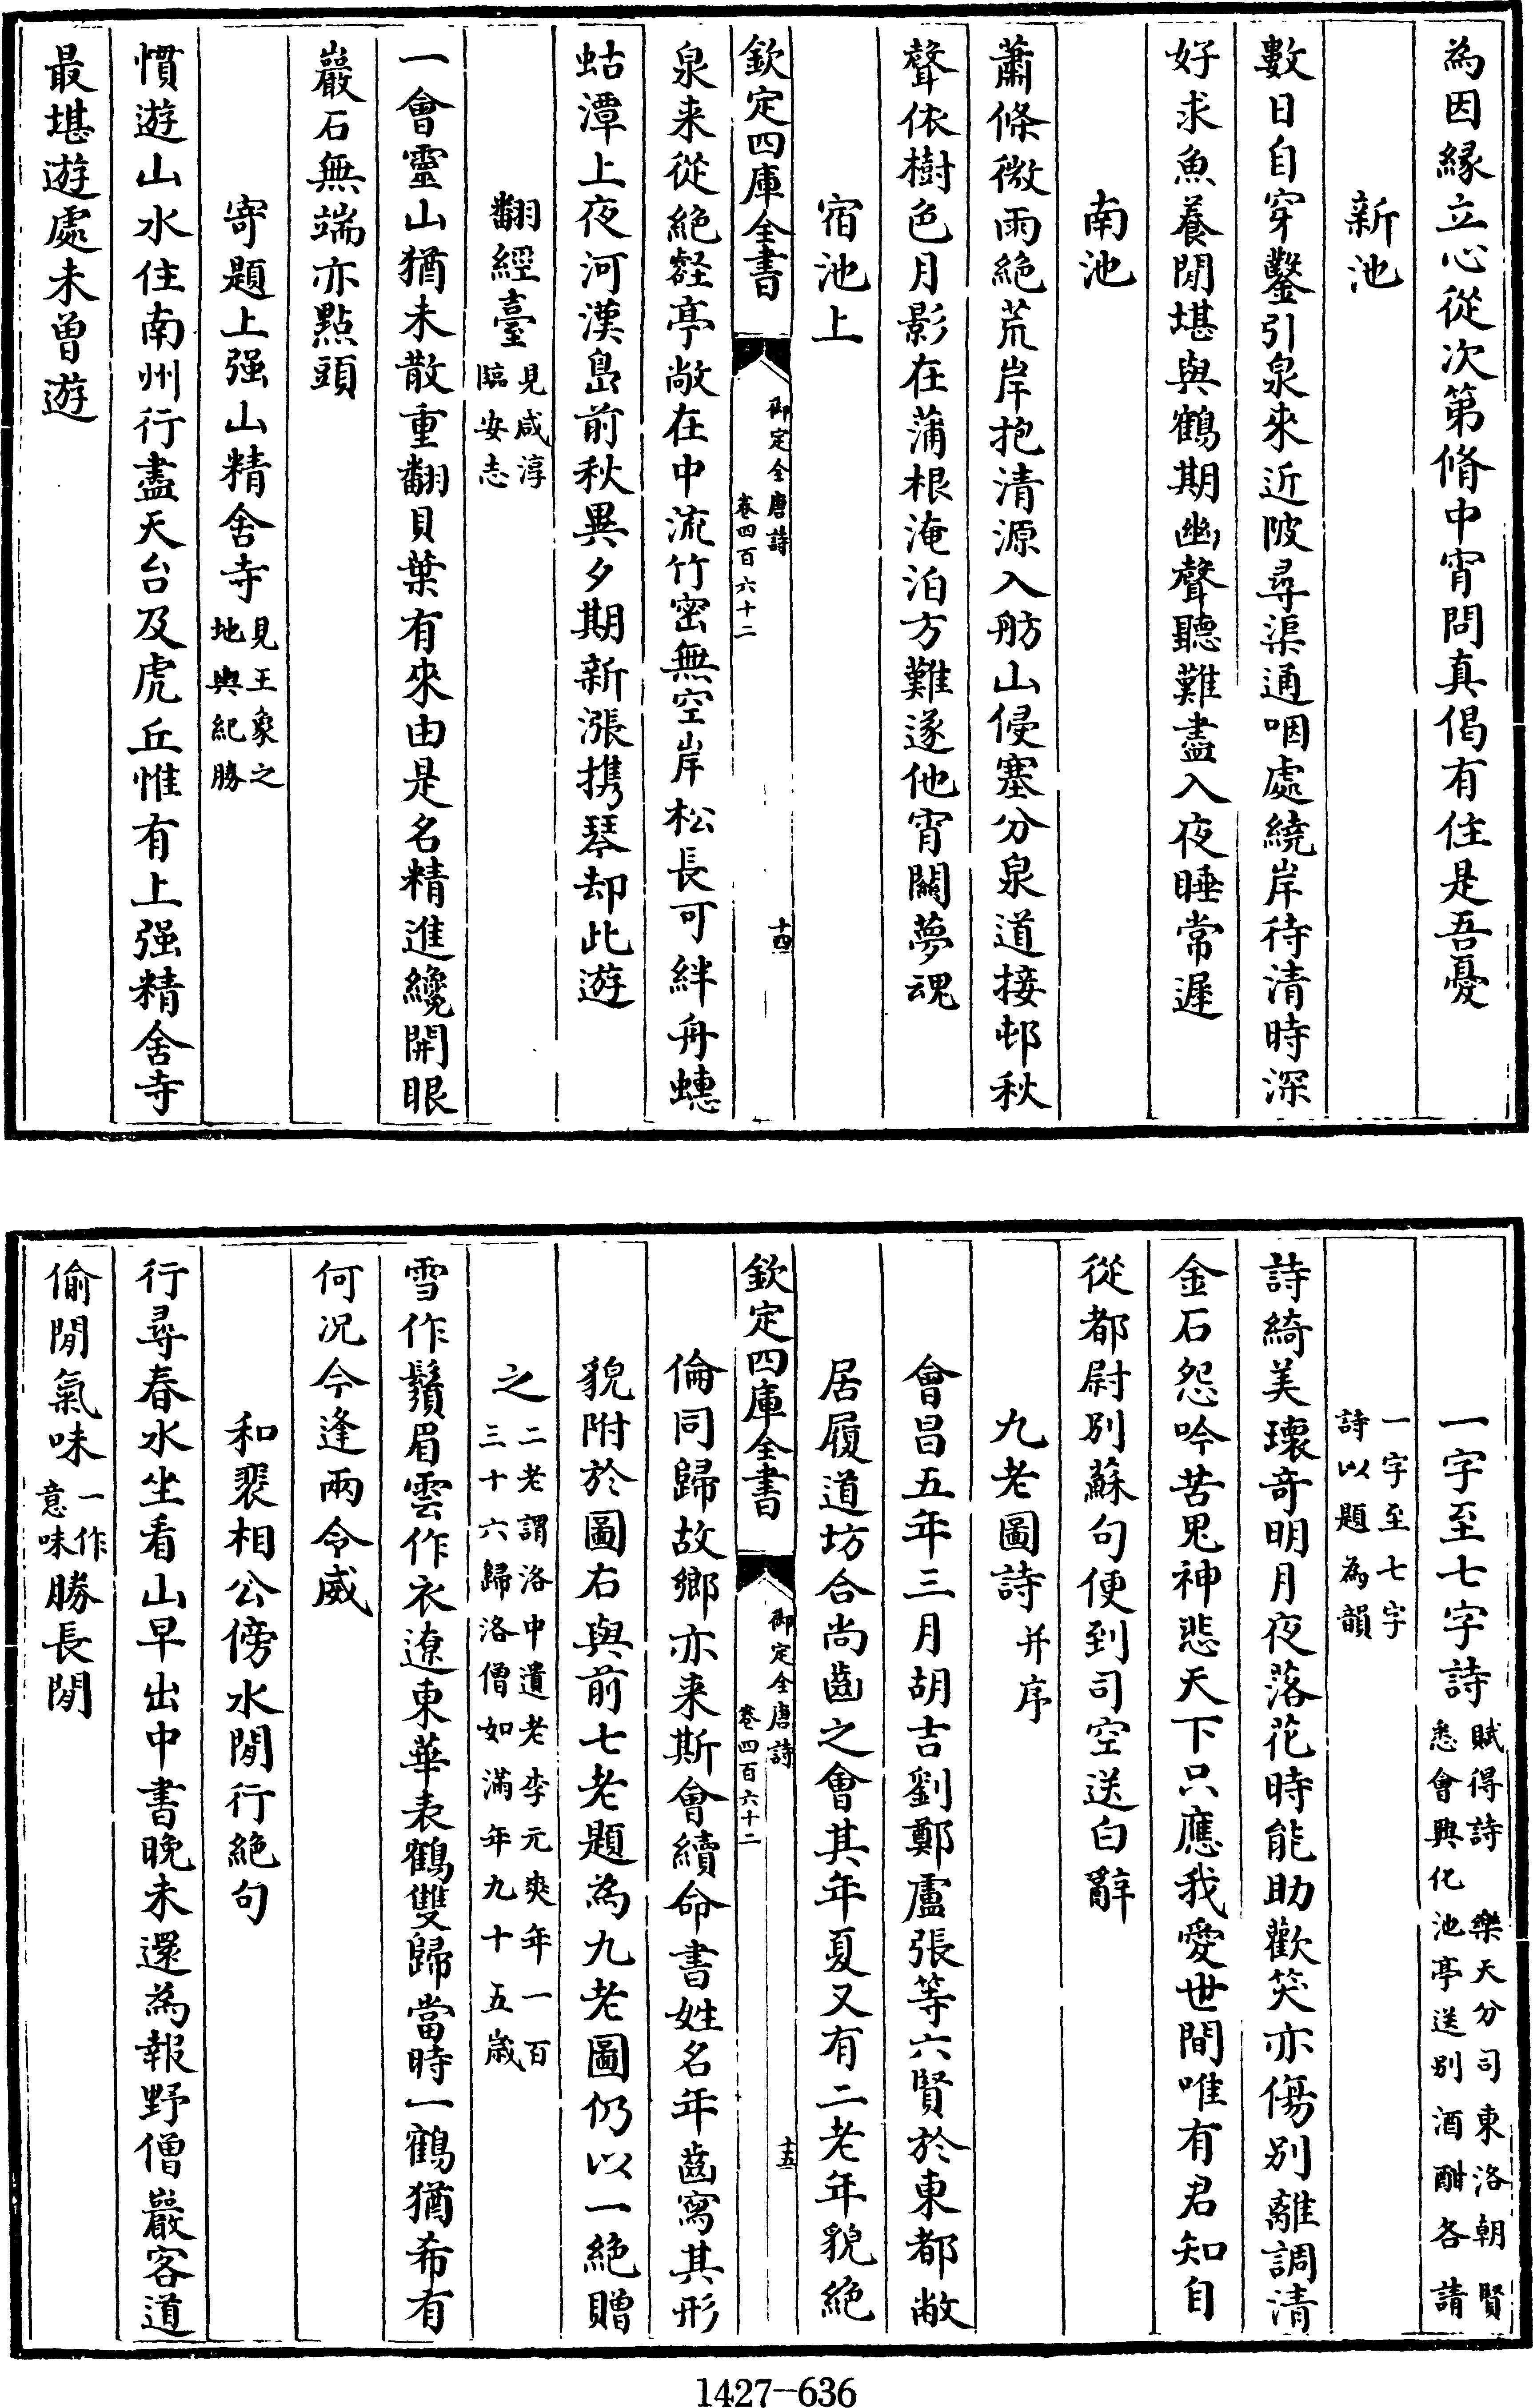 為因緣立心從次第脩中宵問真偈有住是吾憂
新池
數日自穿鑿引泉來近陂尋渠通咽處繞岸待清時深
好求魚養閒堪與鶴期幽聲聽難盡入夜睡常遲
南池
蕭條微雨絶荒岸抱清源入舫山侵塞分泉道接邨秋
聲依樹色月影在蒲根淹泊方難遂他宵闗夢魂
宿池上
欽定四庫全書
御定全唐詩
卷四百六十二
十四
泉来從絶壑亭敞在中流竹密無空岸松長可絆舟蟪
蛄潭上夜河漢島前秋異夕期新漲携琴却此遊
翻經臺見咸淳
臨安志
一會靈山猶未散重翻貝葉有來由是名精進纔開眼
巖石無端亦點頭
寄題上强山精舍寺見王象之
地輿紀勝
慣遊山水住南州行盡天台及虎丘惟有上强精舍寺
最堪遊處未曽遊
一字至七字詩賦得詩 樂天分司東洛朝賢
悉會興化池亭送别酒酣各請
一字至七字
詩以題為韻
詩綺美瓌奇明月夜落花時能助歡笑亦傷别離調清
金石怨吟苦鬼神悲天下只應我愛世間唯有君知自
從都尉别蘇句便到司空送白辭
九老圖詩并序
會昌五年三月胡吉劉鄭盧張等六賢於東都敝
居履道坊合尚齒之會其年夏又有二老年貌絶
欽定四庫全書
御定全唐詩
卷四百六十二
十五
倫同歸故鄉亦来斯會續命書姓名年齒寫其形
貌附於圖右與前七老題為九老圖仍以一絶贈
之二老謂洛中遺老李元爽年一百
三十六歸洛僧如滿年九十五歳
雪作鬚眉雲作衣遼東華表鶴雙歸當時一鶴猶希有
何况今逢兩令威
和裴相公傍水閒行絶句
行尋春水坐看山早出中書晚未還為報野僧巖客道
偷閒氣味一作
意味勝長閒
1427—636